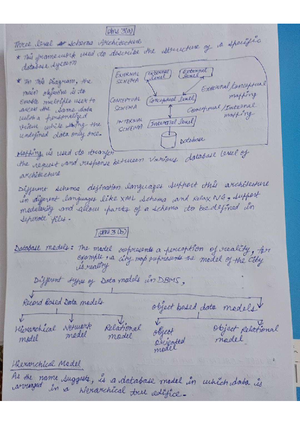 Ans 3(a)
Three level schema Architecture
This framework is used to describe the structure of a specific
database system
In this Diagram, the
main objective is to
enable multiple user to
access the same data
with a personalized
view while storing the
underlined data only once.
EXTERNAL
SCHEMA
External level
External level
External/conceptual
mapping
CONCEPTUAL
SCHEMA
Conceptual level
Conceptual/Internal
mapping
INTERNAL
SCHEMA
Internal level
Database
Mapping is used to transfer
the request and response between various database level of
architecture
Different schema definition languages support this architecture
in different languages like XML schema and Relax NG, support
modularity and allow parts of a schema to be defined in
separate files.
Ans 3(b)
Database models: The model represents a perception of reality, for
example: a city map represents as model of the city
is reality
Different types of Data models in DBMS,
Record Based Data models
Object based data models
Hierarchical model
Network model
Relational model
Object Oriented model
Object Relational model
Hierarchical Model
As the name suggests, is a database model in which data is
arranged in a hierarchical tree edifice.